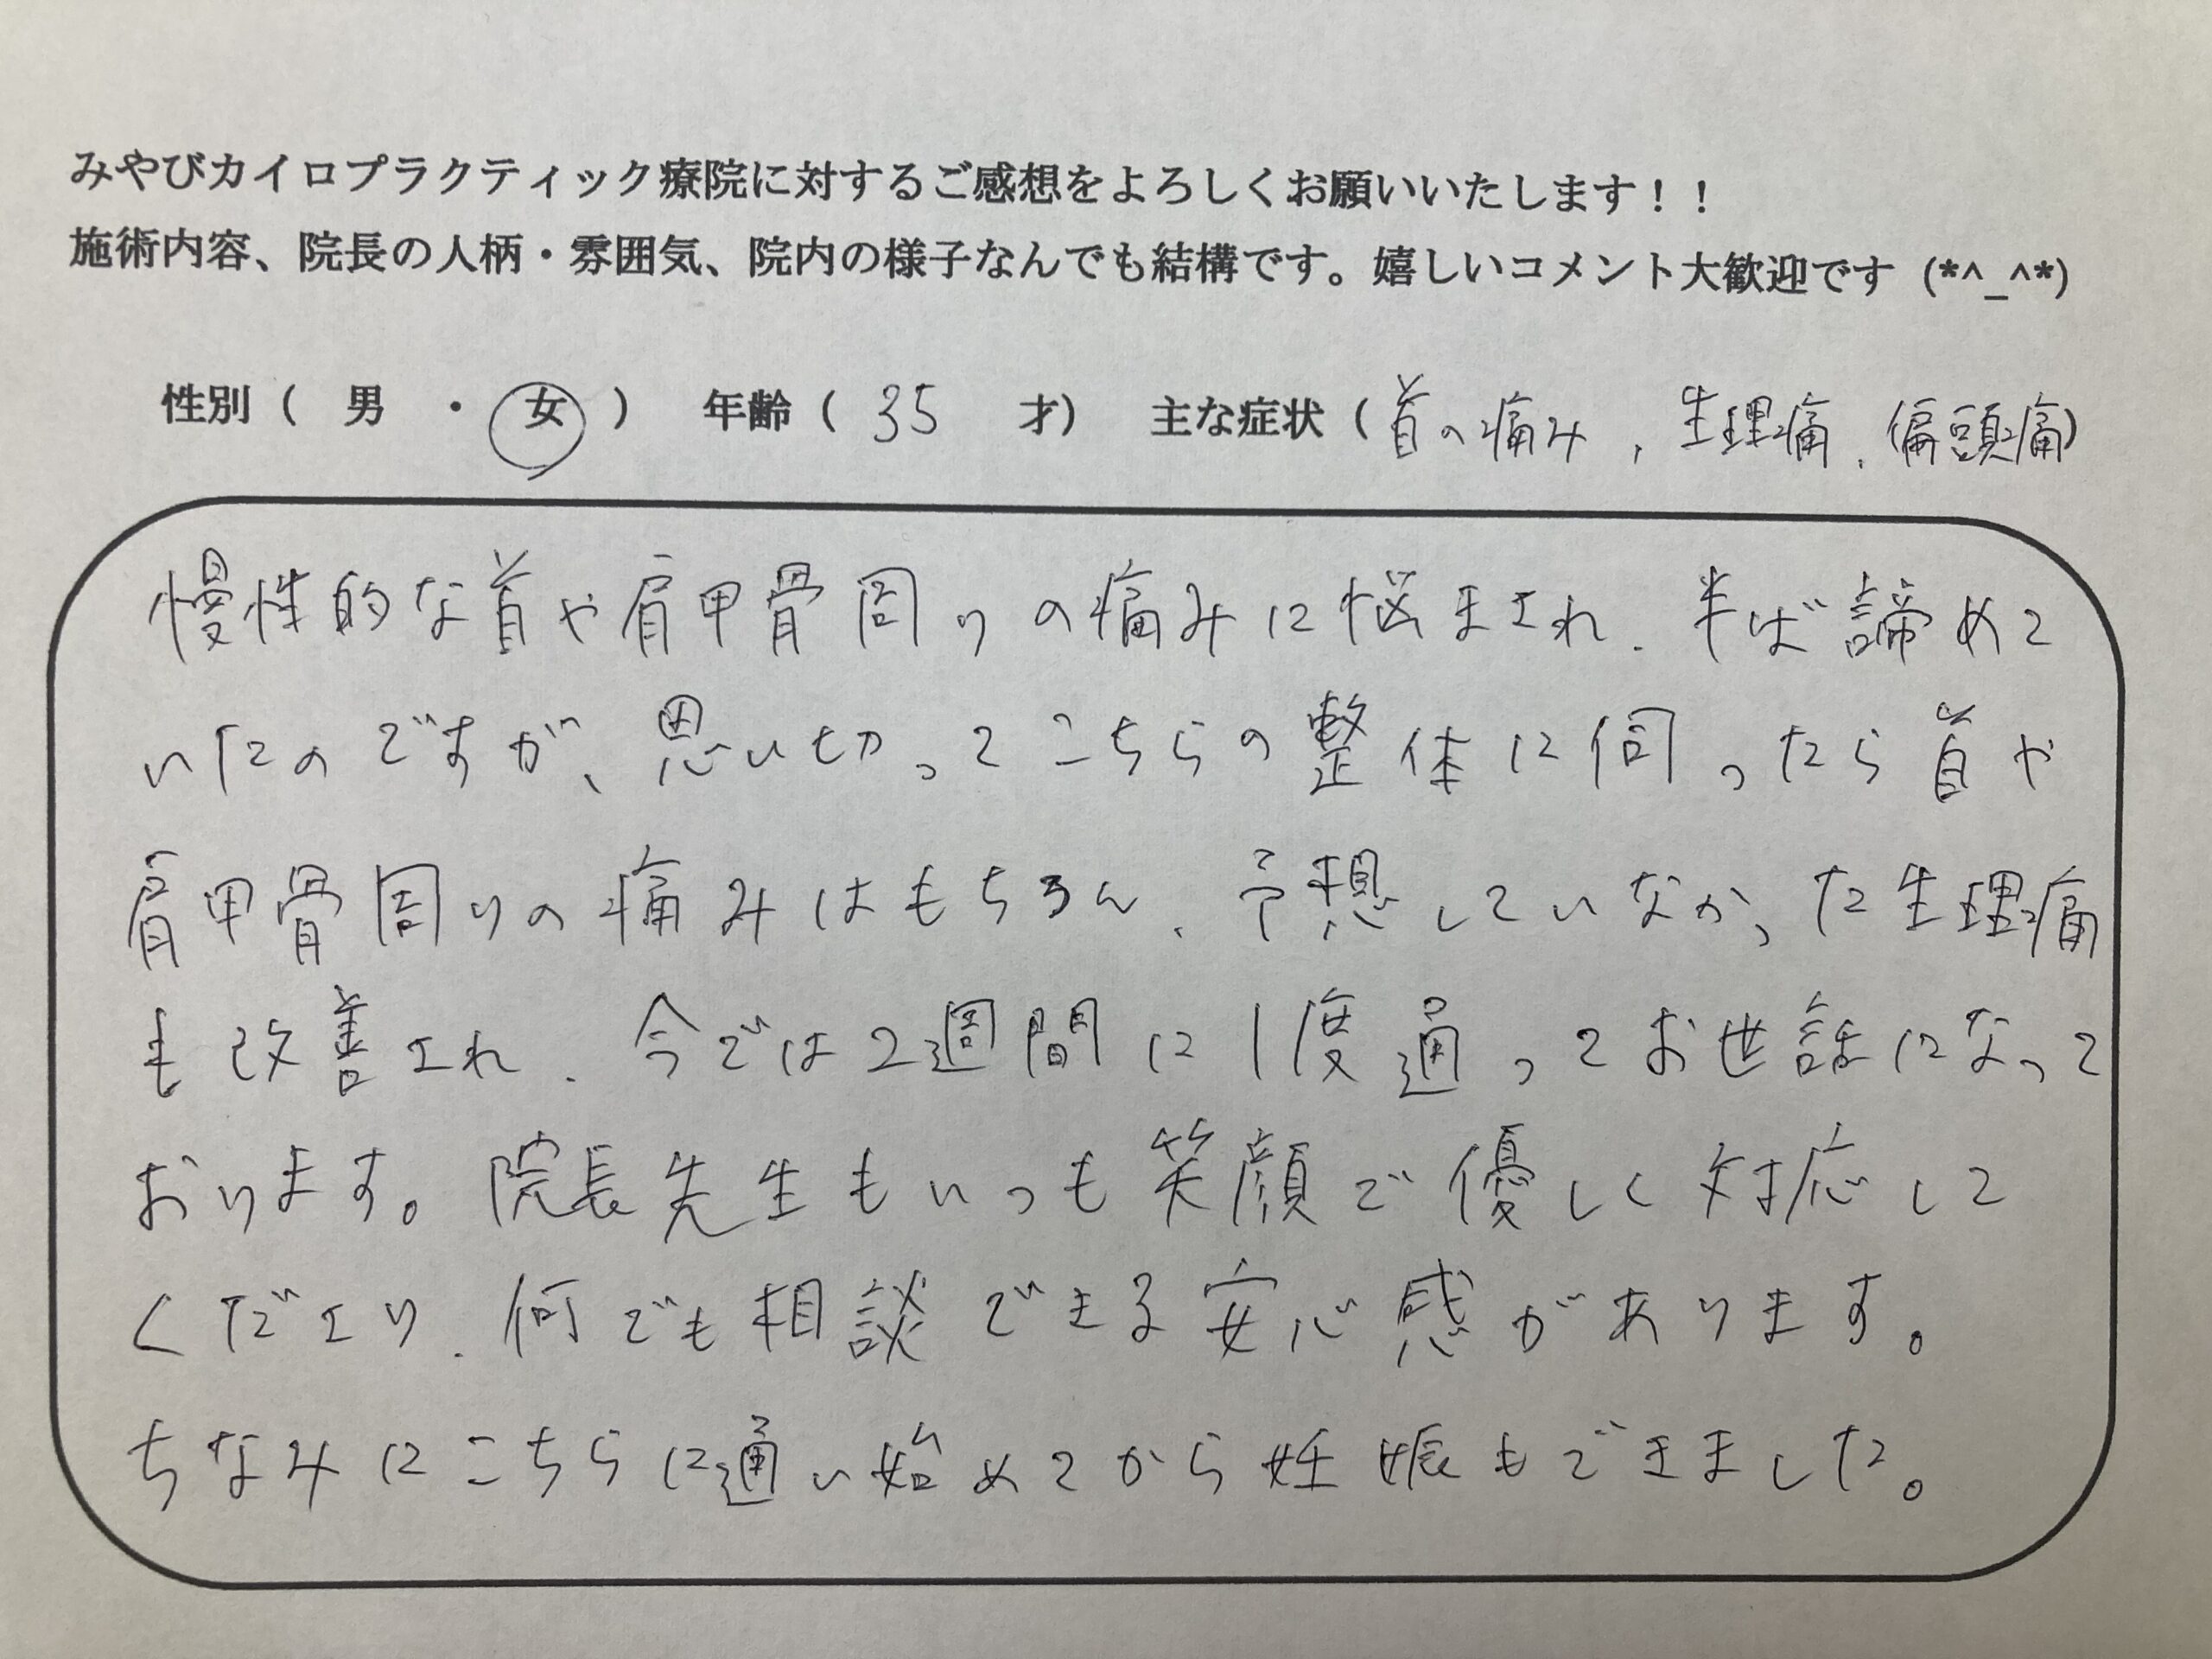 みやびカイロプラクティック療院に対するご感想をよろしくお願いいたします！！
施術内容、院長の人柄・雰囲気、院内の様子なんでも結構です。嬉しいコメント大歓迎です (*^_^*)
性別（ 男 ・ 女 ） 年齢（ 35 才） 主な症状（首の痛み、生理痛、偏頭痛）
慢性的な首や肩甲骨周りの痛みに悩まされ、半ば諦めて
いたのですが、思い切ってこちらの整体に伺ったら首や
肩甲骨周りの痛みはもちろん、予想していなかった生理痛
も改善され、今では2週間に1度通ってお世話になって
おります。院長先生もいつも笑顔で優しく対応して
くださり、何でも相談できる安心感があります。
ちなみにこちらに通い始めてから妊娠もできました。